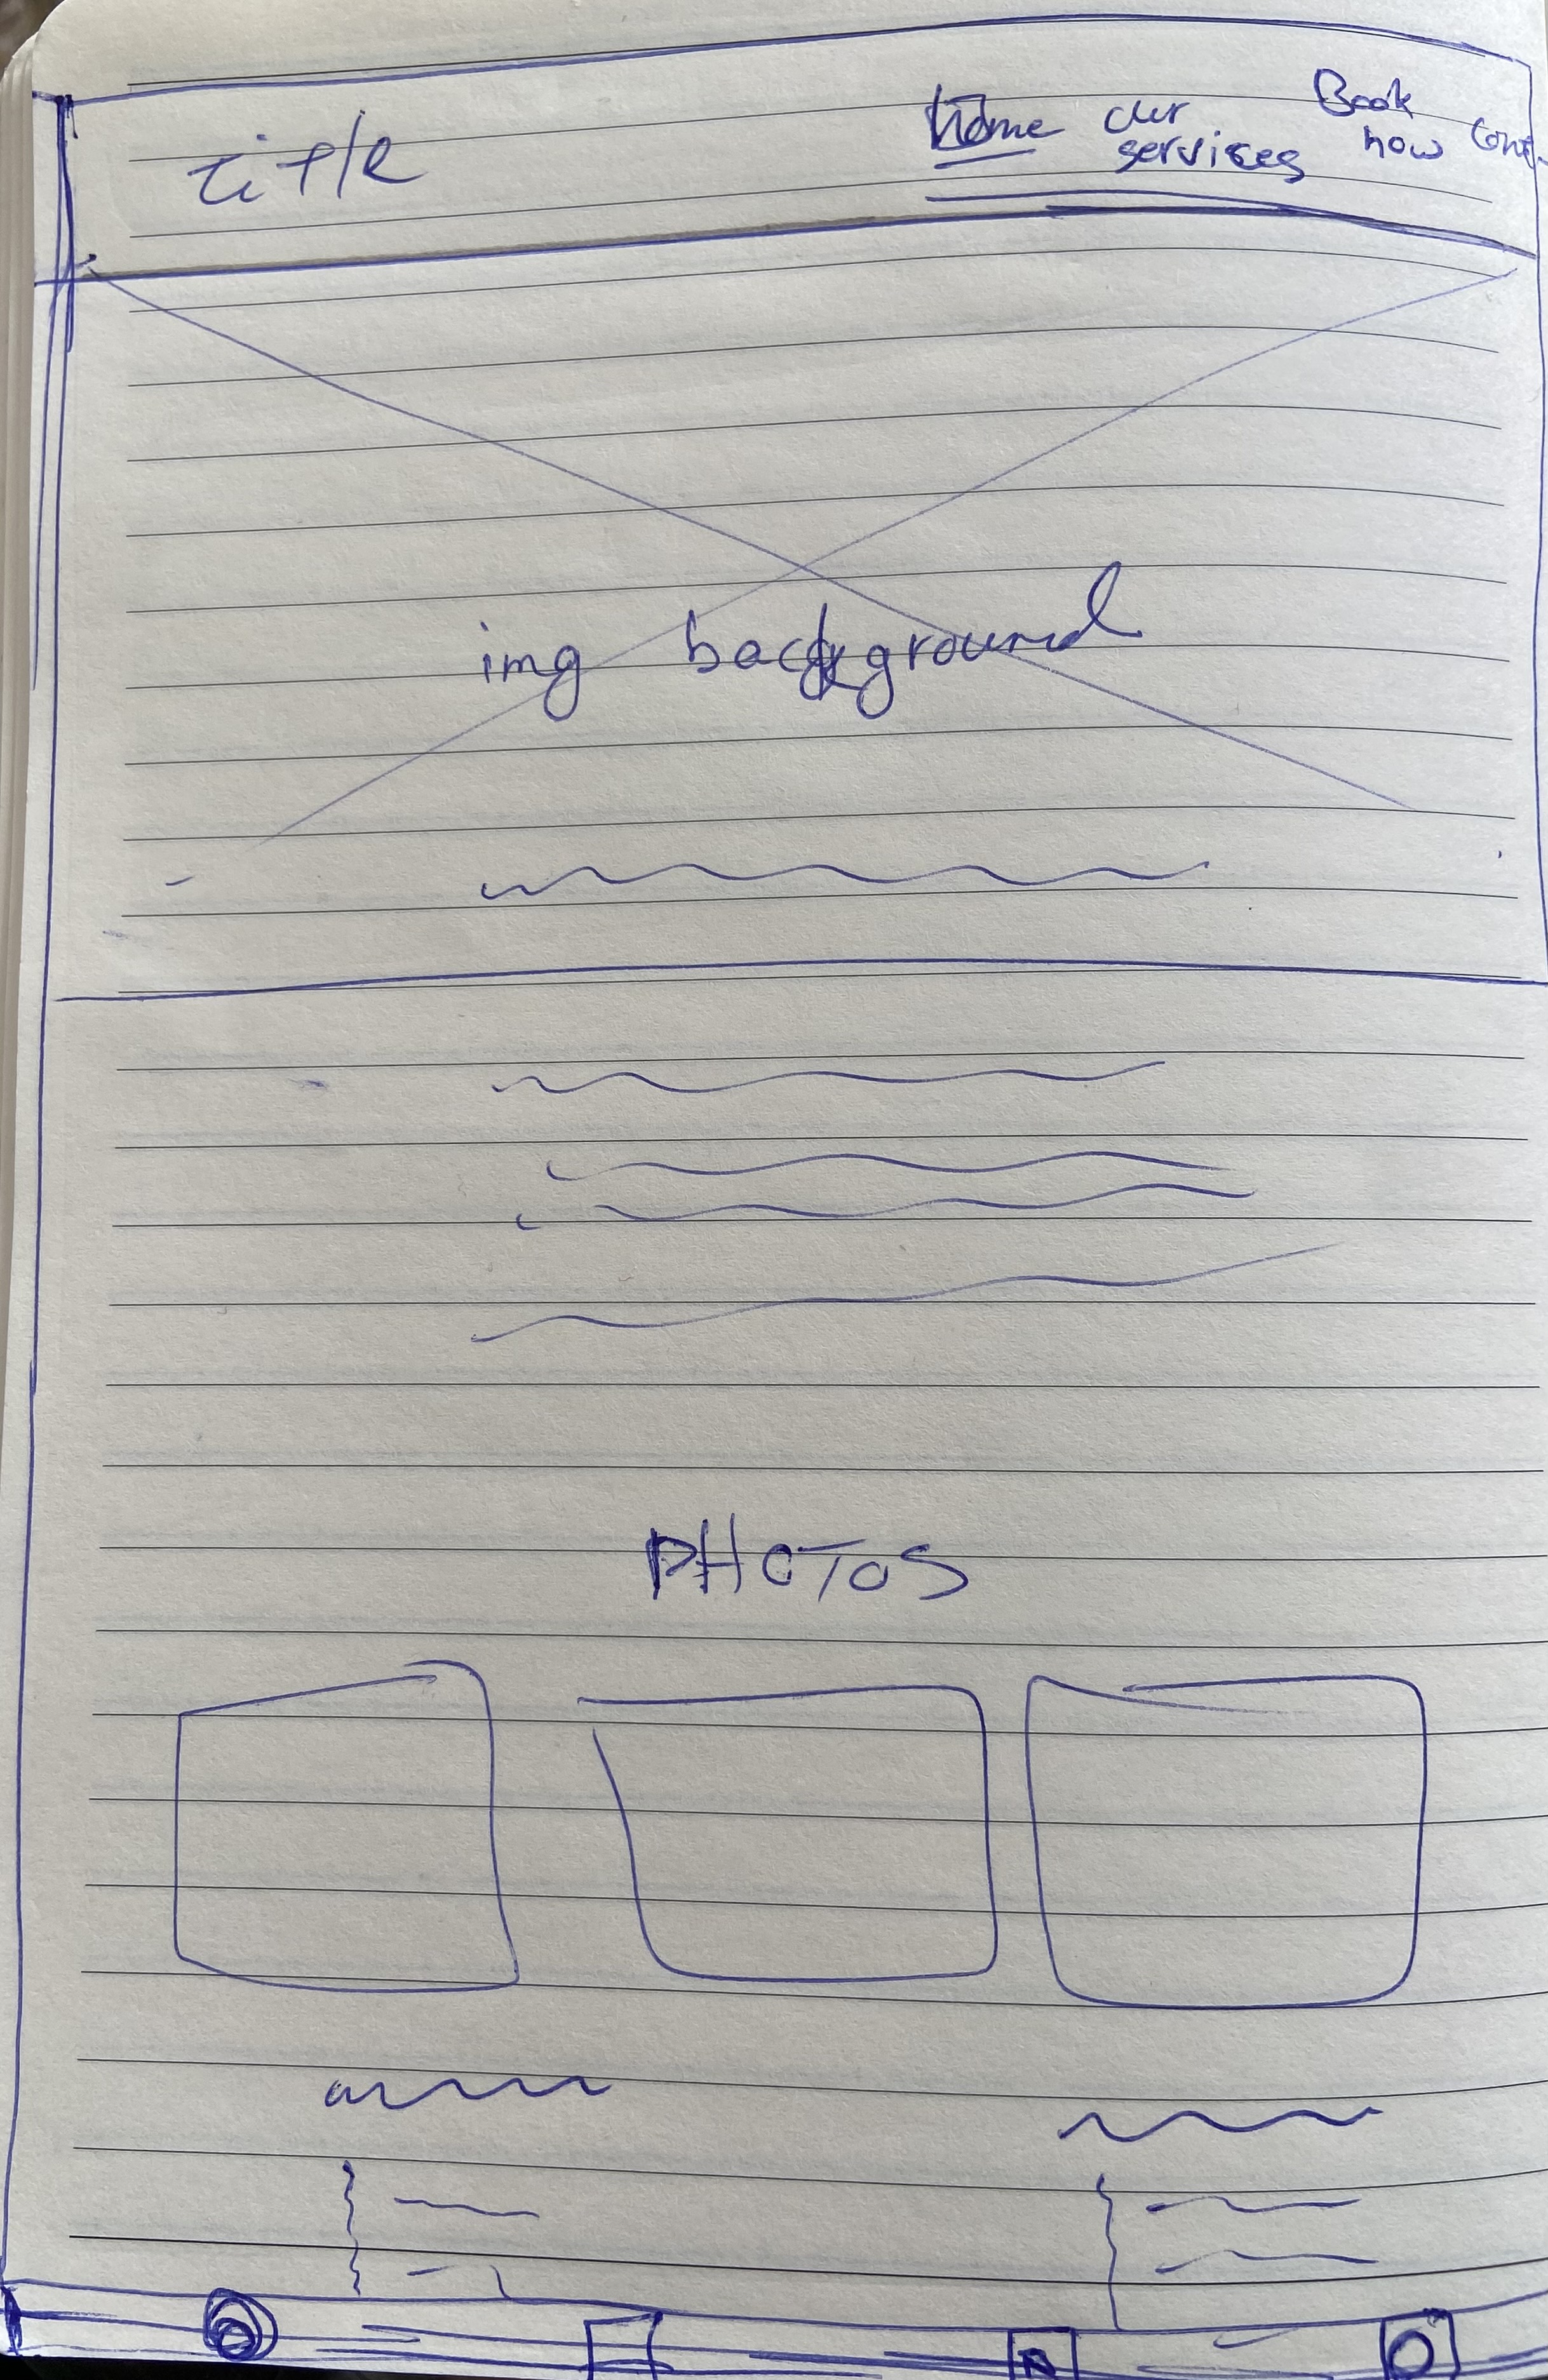 title
Home our services Book now Cont
img background
PHOTOS